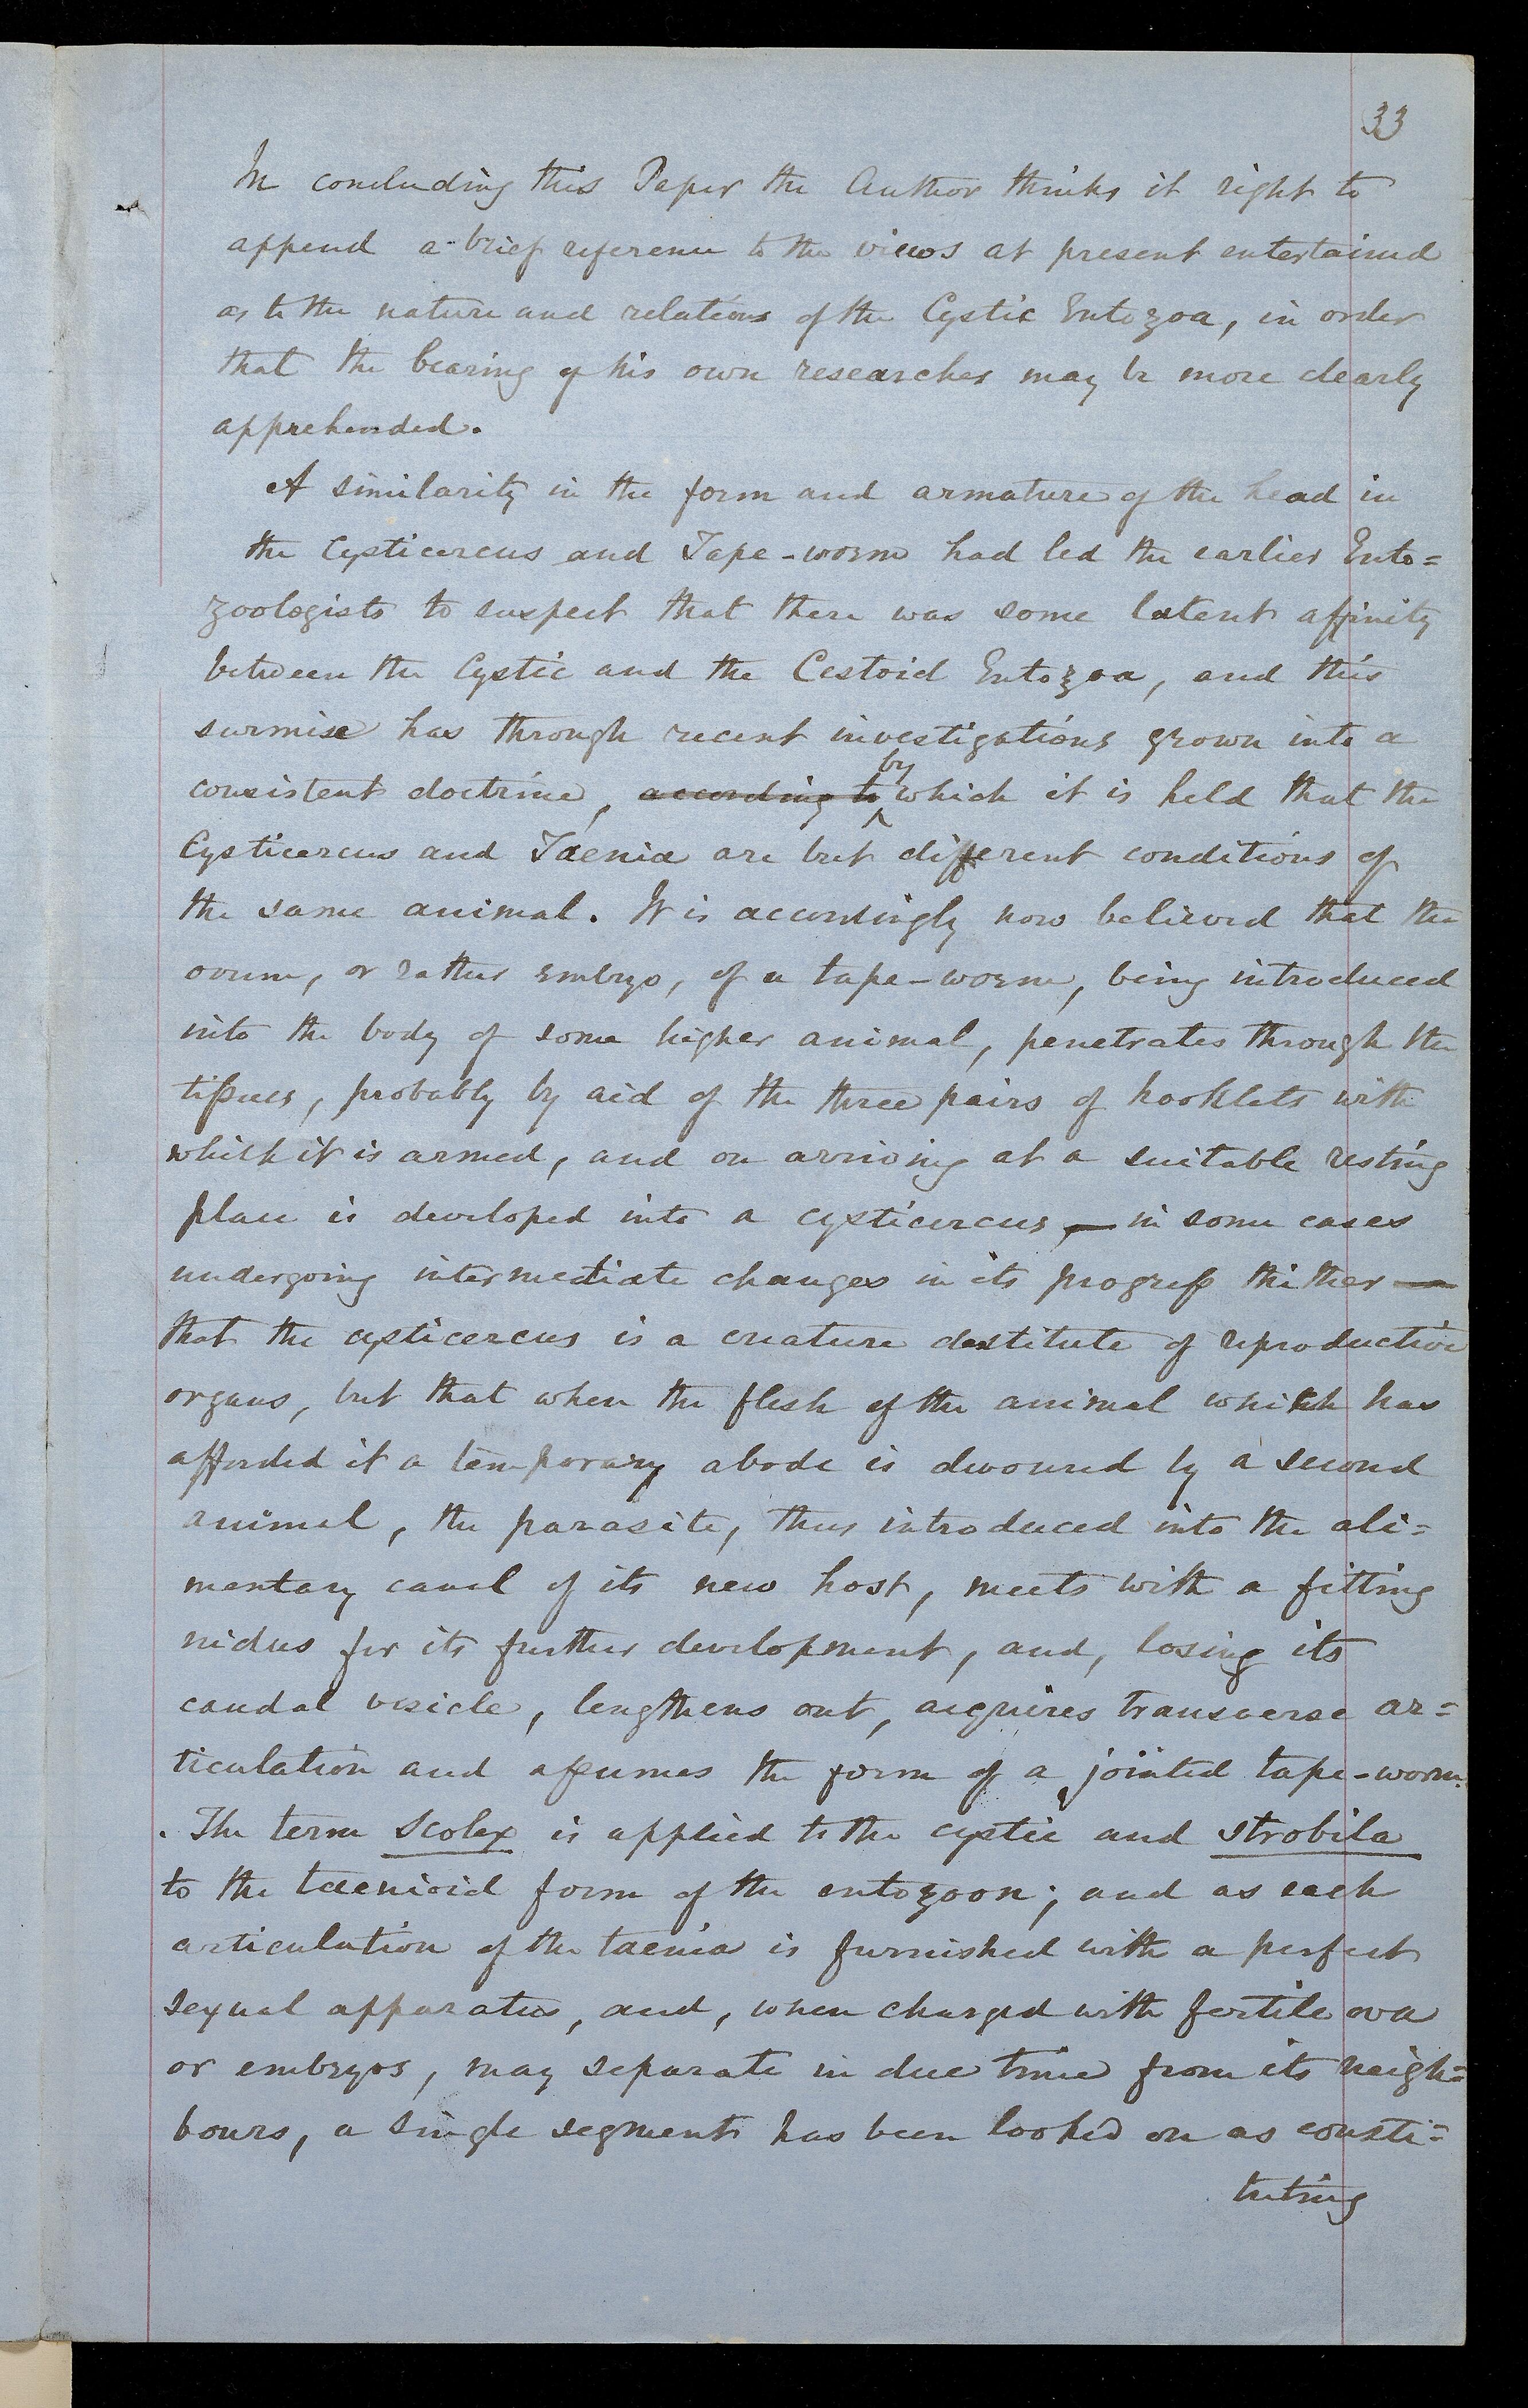 33
In concluding this Paper the Author thinks it right to
append a brief reference to the views at present entertained
as to the nature and relations of the Cystic Entozoa, in order
that the bearing of his own researches may be more clearly
apprehended.
A similarity in the form and armature of the head in
the Cysticercus and Tape-worm had led the earlier Ento=
zoologists to suspect that there was some latent affinity
between the Cystic and the Cestoid Entozoa, and this
surmise has through recent investigations grown into a
by
consistent doctrine, according to which it is held that the
Cysticercus and Taenia are but different conditions of
the same animal. It is accordingly now believed that the
ovum, or rather embryo, of a tape-worm, being introduced
into the body of some higher animal, penetrates through the
tissues, probably by aid of the three pairs of hooklets with
which it is armed, and on arriving at a suitable resting
place is developed into a cysticercus, — in some cases
undergoing intermediate changes in its progress thither —
that the cysticercus is a creature destitute of reproductive
organs, but that when the flesh of the animal which has
afforded it a temporary abode is devoured by a second
animal, the parasite, thus introduced into the ali=
mentary canal of its new host, meets with a fitting
nidus for its further development, and, losing its
caudal vesicle, lengthens out, acquires transverse ar=
ticulation and assumes the form of a jointed tape-worm.
. The term Scolex is applied to the cystic and strobila
to the taenioid form of the entozoon; and as each
articulation of the taenia is furnished with a perfect
sexual apparatus, and, when charged with fertile ova
or embryos, may separate in due time from its neigh=
bours, a single segment has been looked on as consti=
tuting